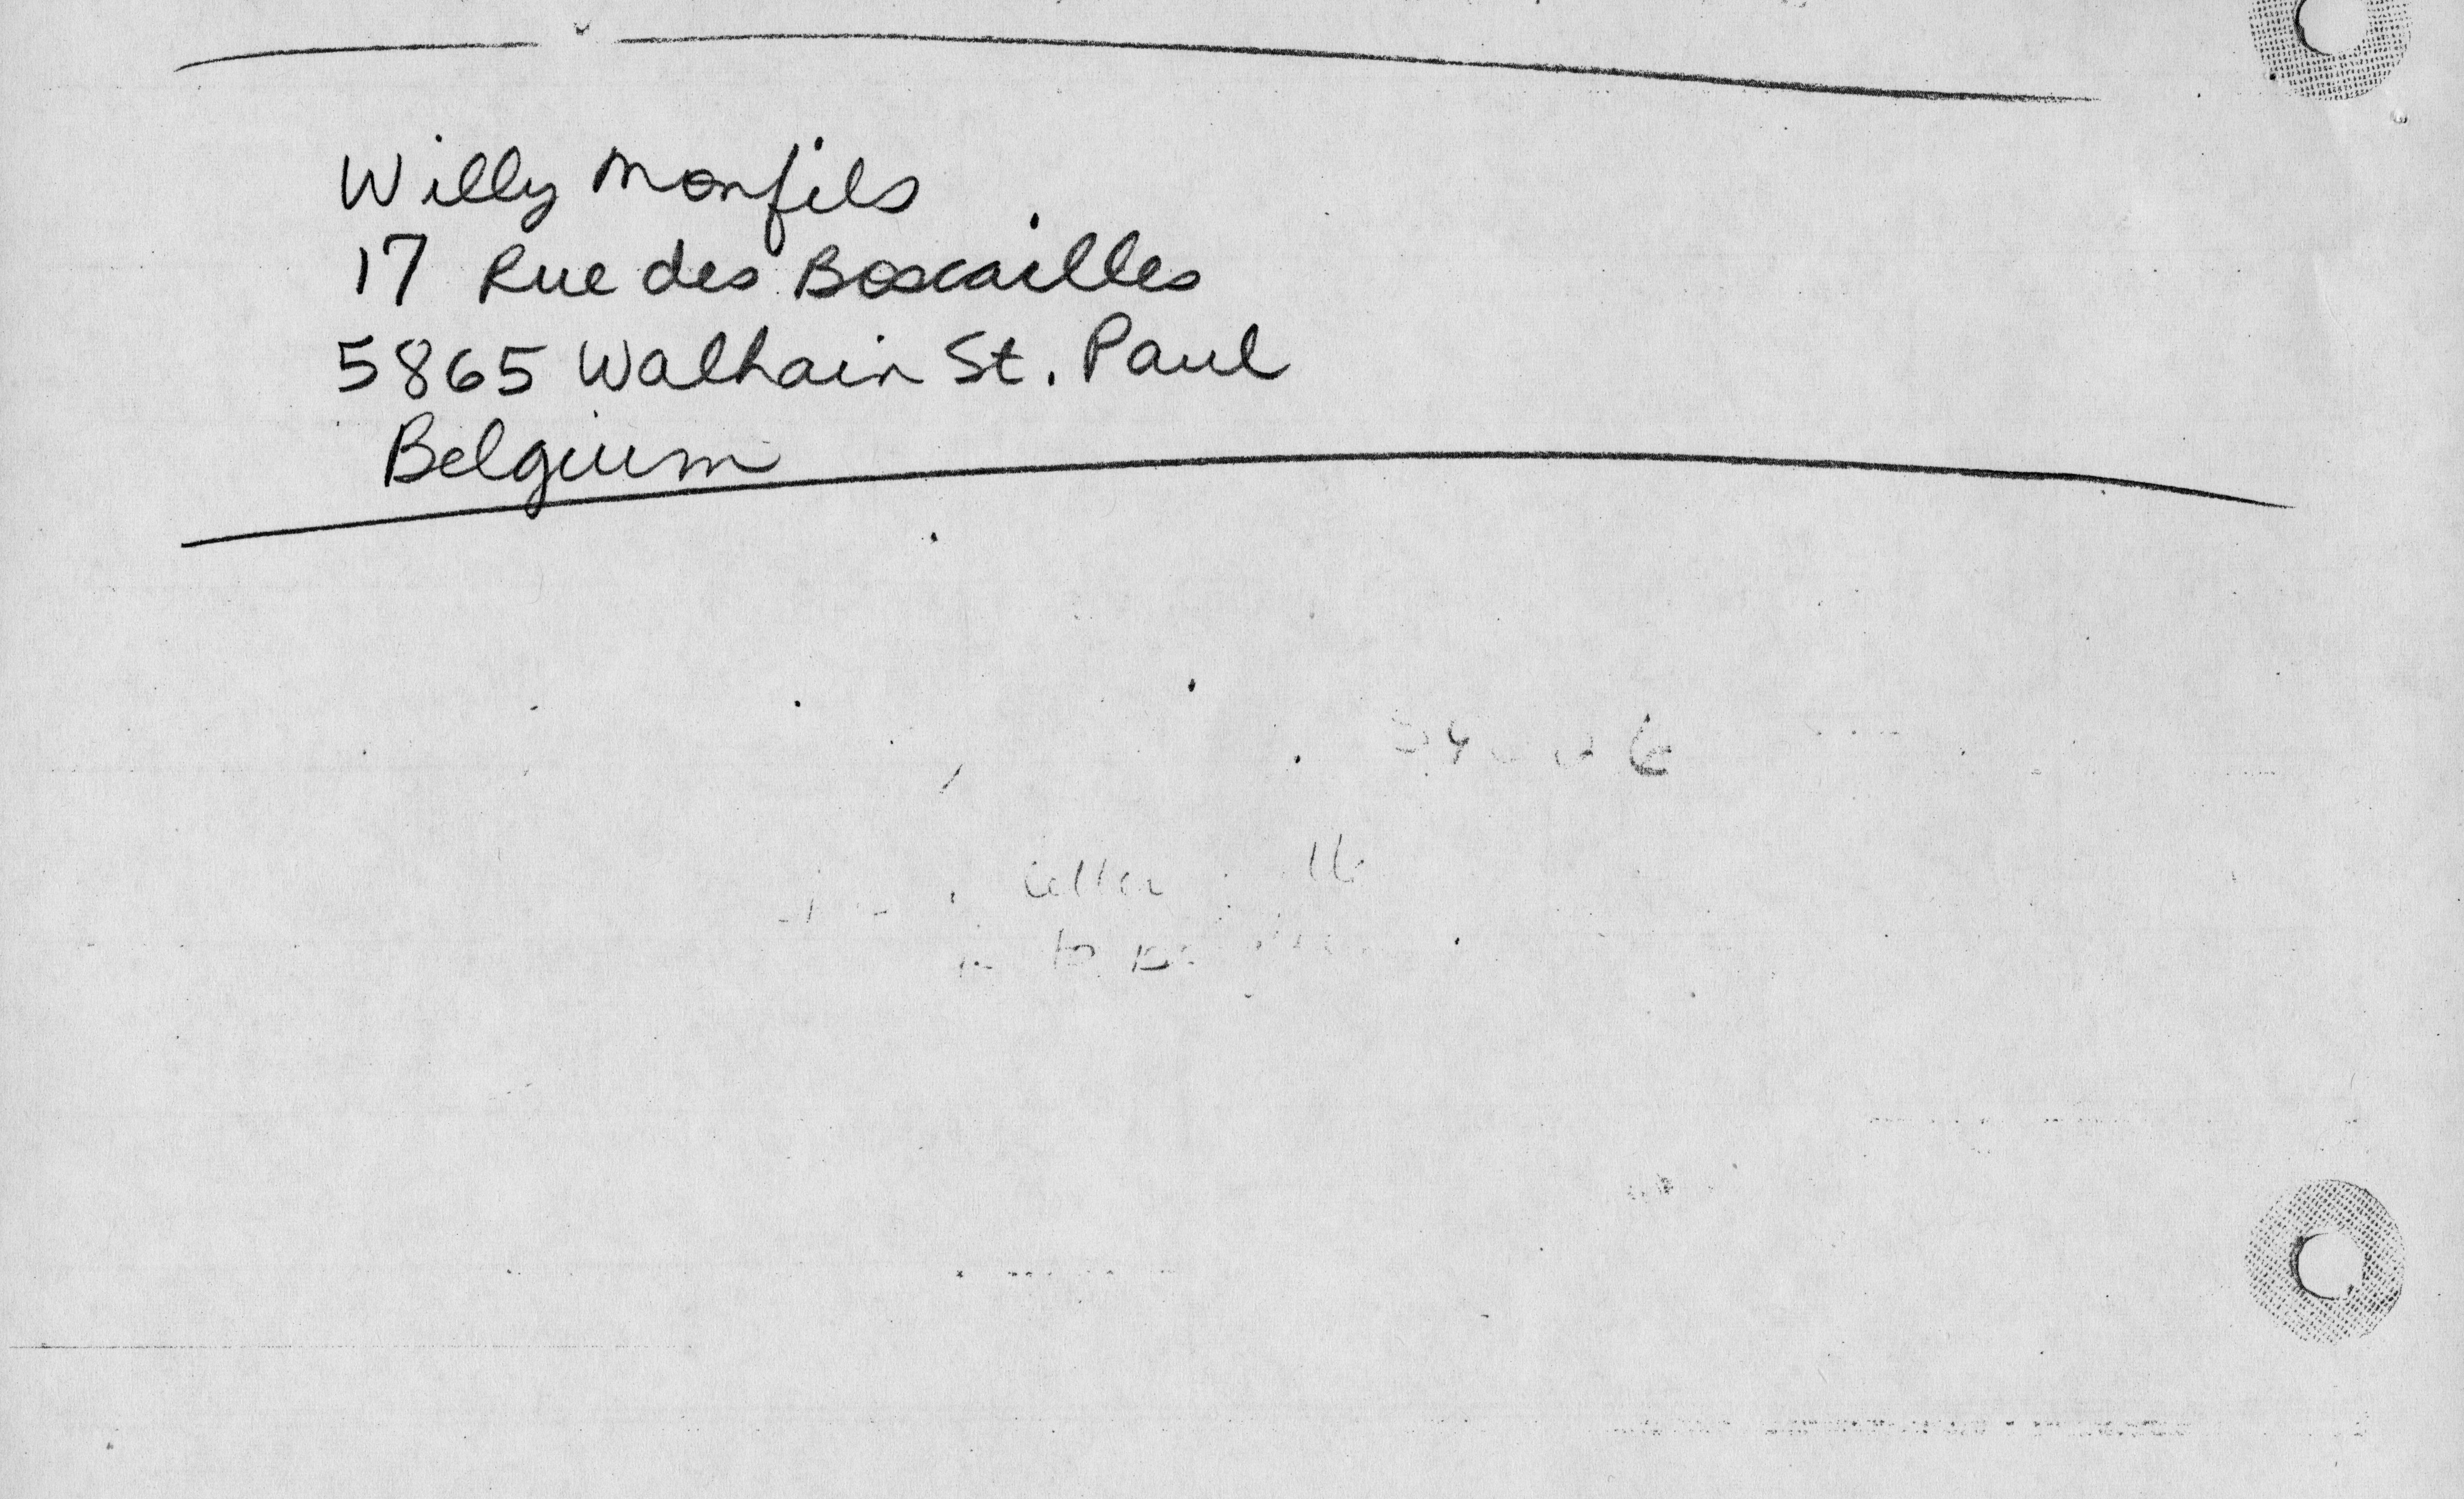 Willy Monfils
17 Rue des Boscailles
5865 Walhain St. Paul
Belgium